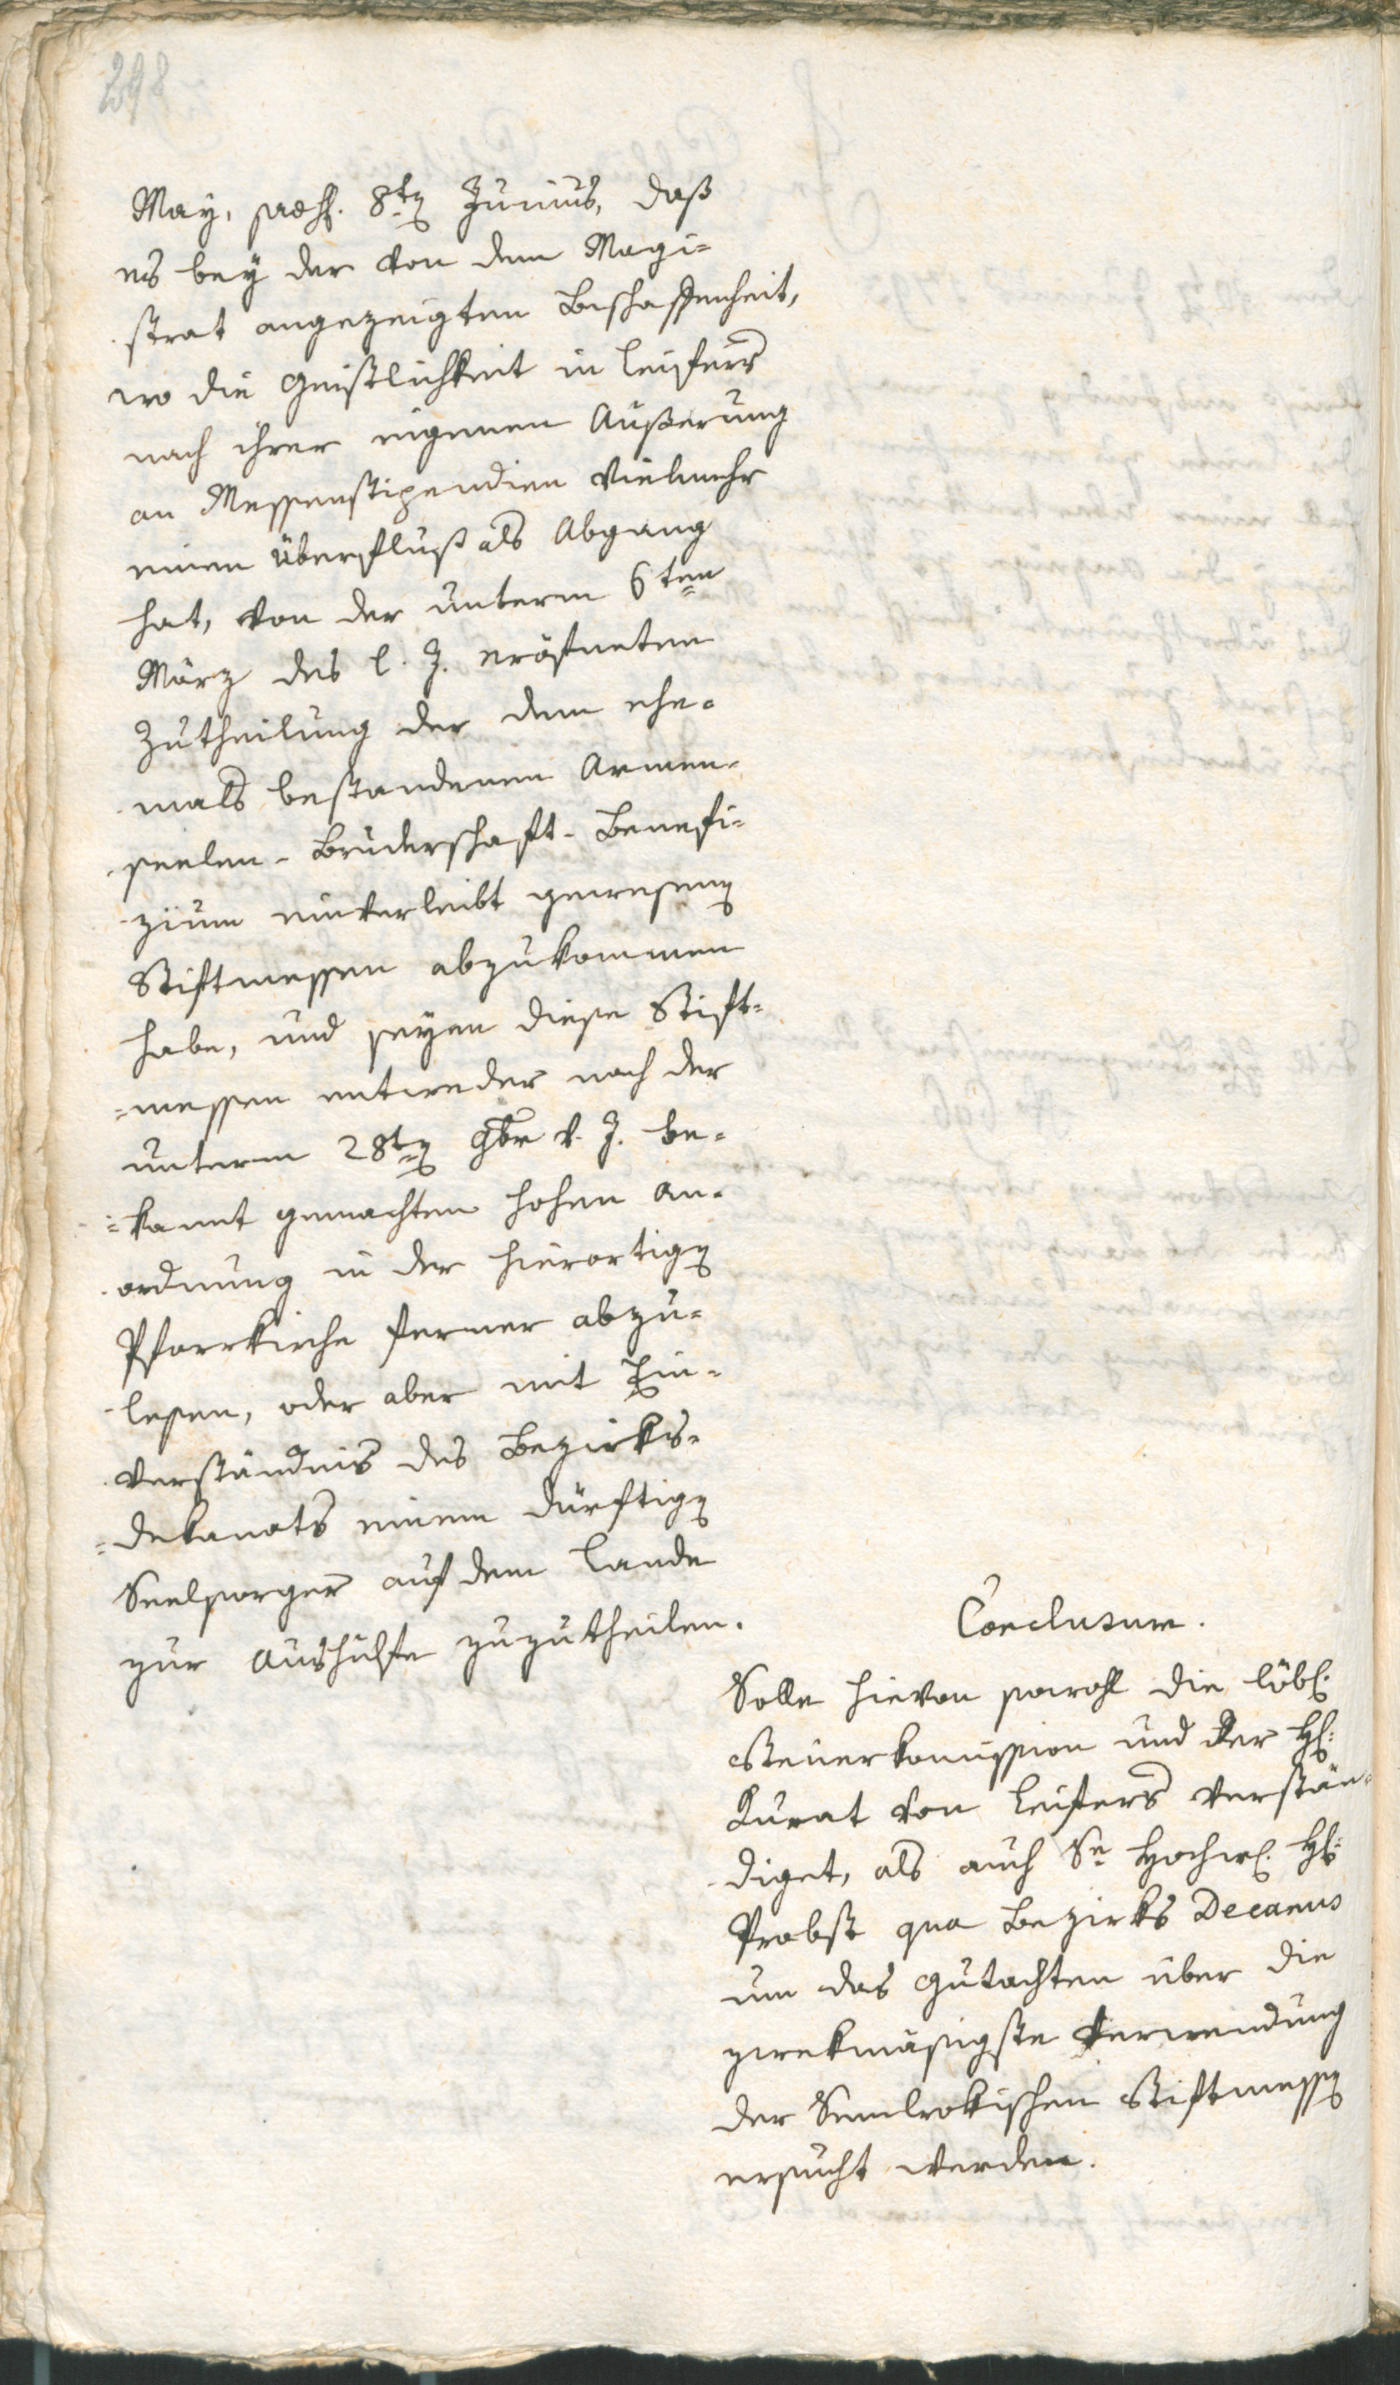 298
May, 8ten Junius, daß
es bey der von dem Magi=
strat angezeigten Beschaffenheit,
wo die Geistlichkeit in Leifers
nach ihrer eigenen Äußerung
an Messenstipendien vielmehr
einen Überfluß als Abgang
hat, von der unterm 6ten
März des l. J. eröfneten
Zutheilung der dem ehe=
mals bestandenen Armen=
seelen-Bruderschaft-Benefi=
zium einverleibt gewesenen
Stiftmessen abzukommen
habe, und seyen diese Stift=
=messen entweder nach der
unterm 28ten 9br v. J. be=
=kannt gemachten hohen An=
ordnung in der hierortigen
Pfarrkirche ferner abzu=
lesen, oder aber mit Ein=
verständnis des Bezirks=
=dekanats einem dürftigen
Seelsorger auf dem Lande
zur Aushülfe zuzutheilen.
Conclusum.
Solle hievon sowohl die löbl.
Steuerkomission und der H:
Kurat von Leifers verstän=
diget, als auch Se Hochw. H:
Probst qua Bezirks Decanus
um das Gutachten über die
zwekmäsigste Verwendung
der Stiftmessen
ersucht werden.